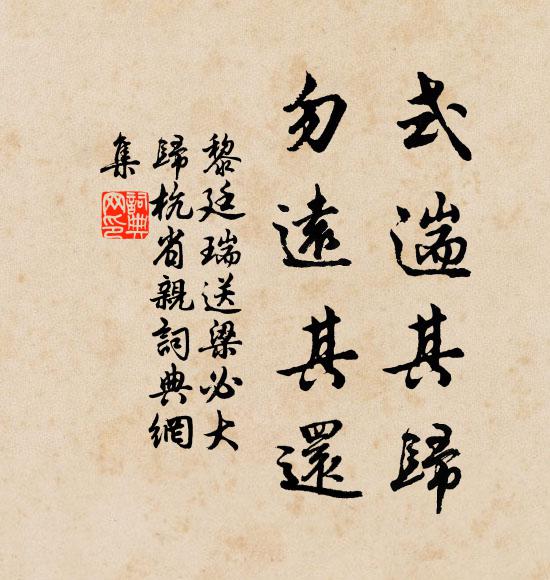 式遄其歸
勿遠其還
黎廷瑞送梁必大
歸杭省親詞典網
集
詞典网印